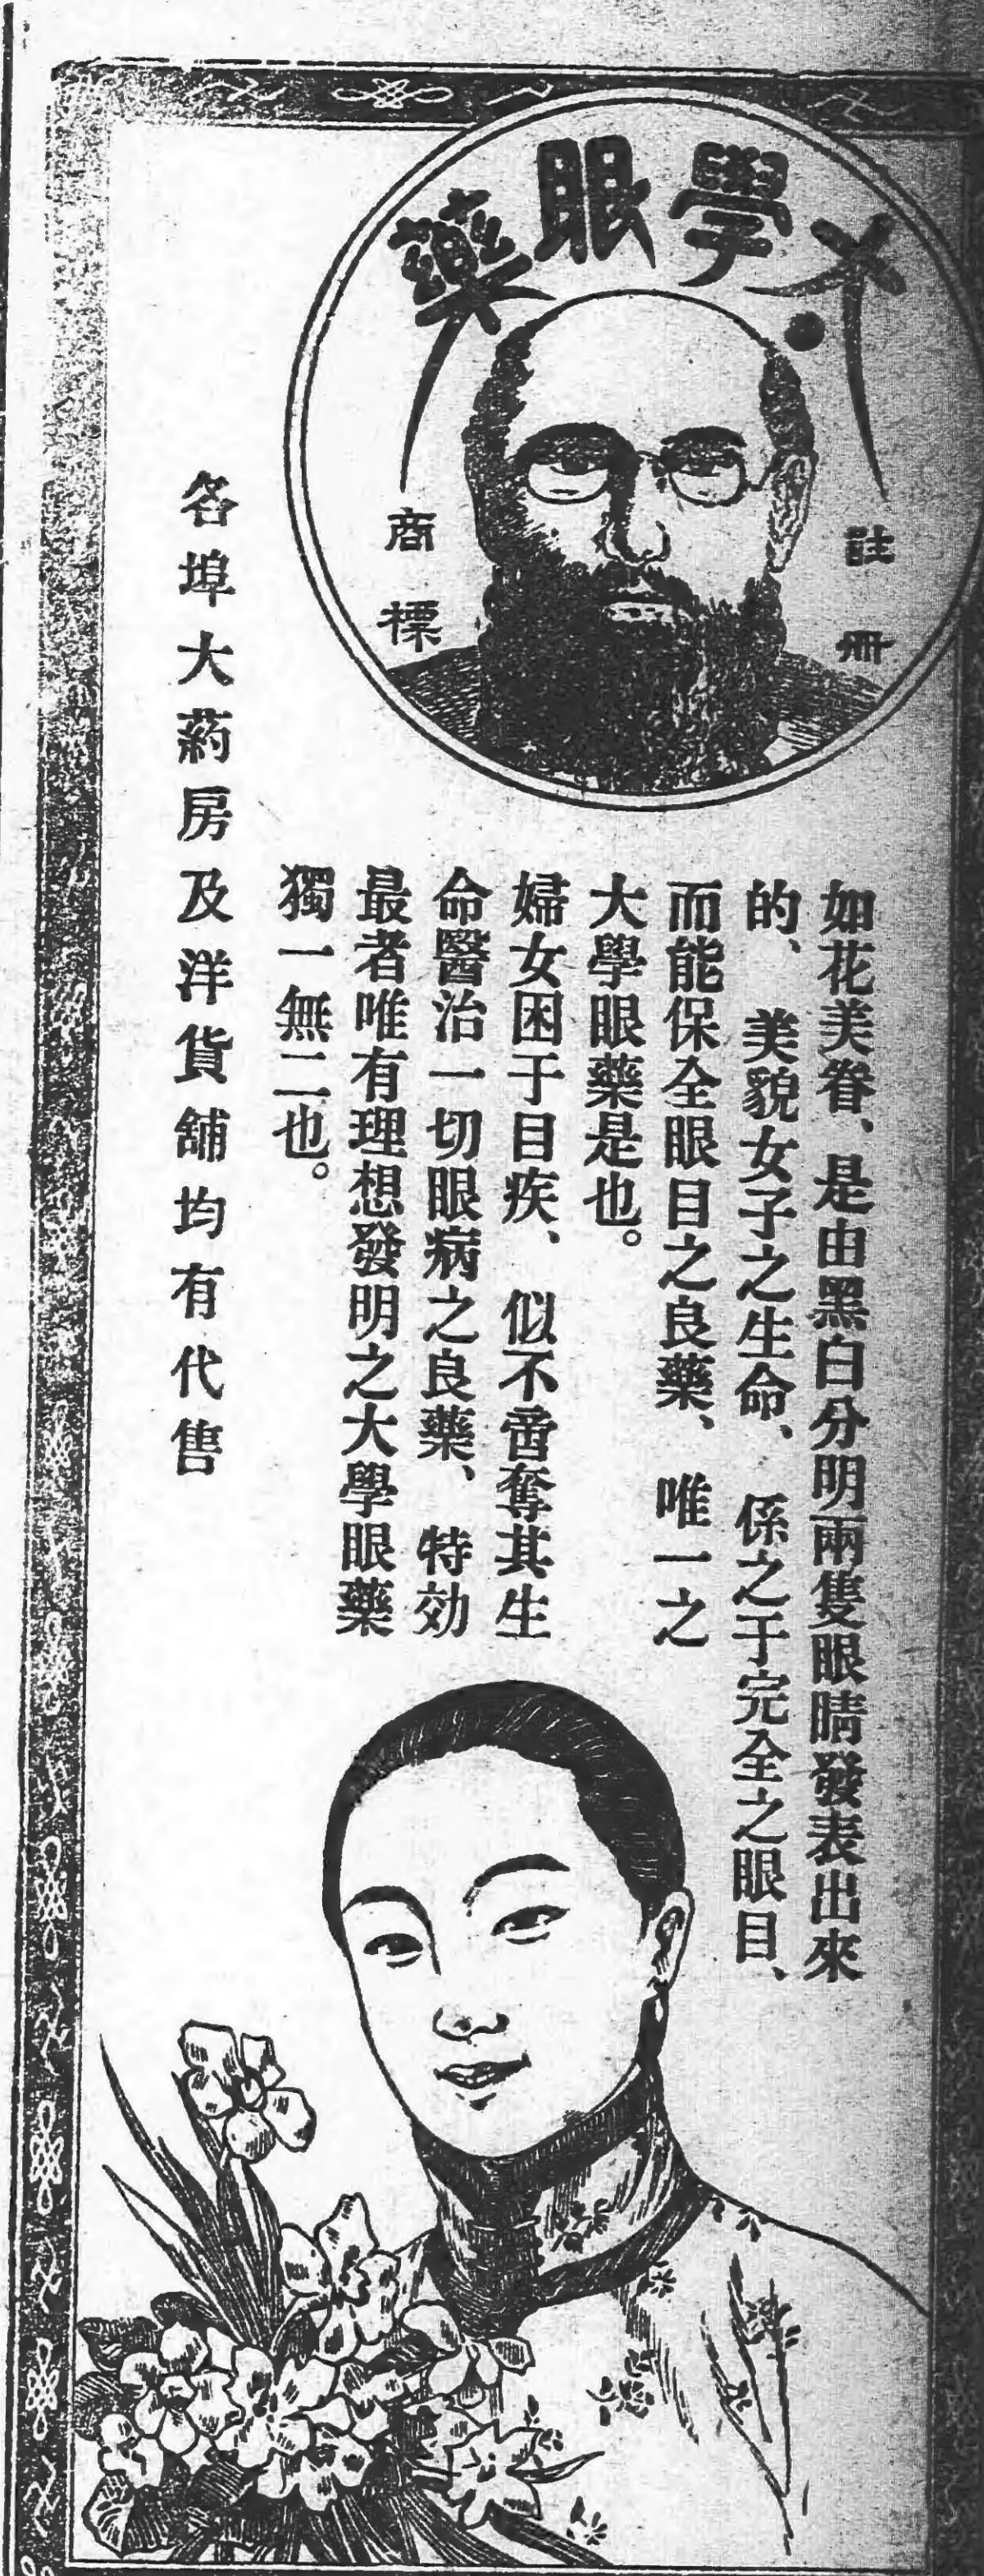 大學眼藥
註冊
商標
如花美眷、是由黑白分明兩隻眼睛發表出來
的、美貌女子之生命、係之于完全之眼目、
而能保全眼目之良藥、唯一之
大學眼藥是也。
婦女困于目疾、似不啻奪其生
命醫治一切眼病之良藥、特効
最者唯有理想發明之大學眼藥
獨一無二也。
各埠大葯房及洋貨舖均有代售